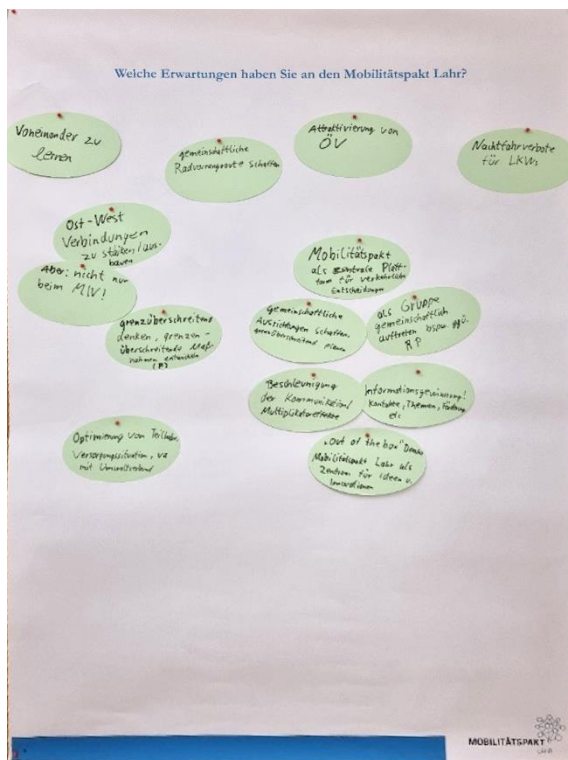 Welche Erwartungen haben Sie an den Mobilitätspakt Lahr?
Voneinander zu
lernen
gemeinschaftliche
Radvorrangroute schaffen
Attraktivierung von
ÖV
Nachtfahrverbote
für LKWs
Ost-West
Verbindungen
zu stärken/aus-
bauen
Aber: nicht nur
beim MIV!
grenzüberschreitend
denken, grenzen-
überschreitende Maß-
nahmen entwickeln
Mobilitätspakt
als zentrale Platt-
form für verkehrliche
Entscheidungen
gemeinschaftliche
Ausrichtungen schaffen
grenzüberschreitend planen
als Gruppe
gemeinschaftlich
auftreten bspw. ggü.
RP
Beschleunigung
der Kommunikation/
Multiplikatoreffekte
Informationsgewinnung!
Kontakte, Themen, Förderung
etc
Optimierung von Teilhabe
Versorgungssituation, va
mit Umweltverbund
"Out of the box"
Mobilitätspakt Lahr als
Zentrum für Ideen u.
Innovationen
MOBILITÄTSPAKT